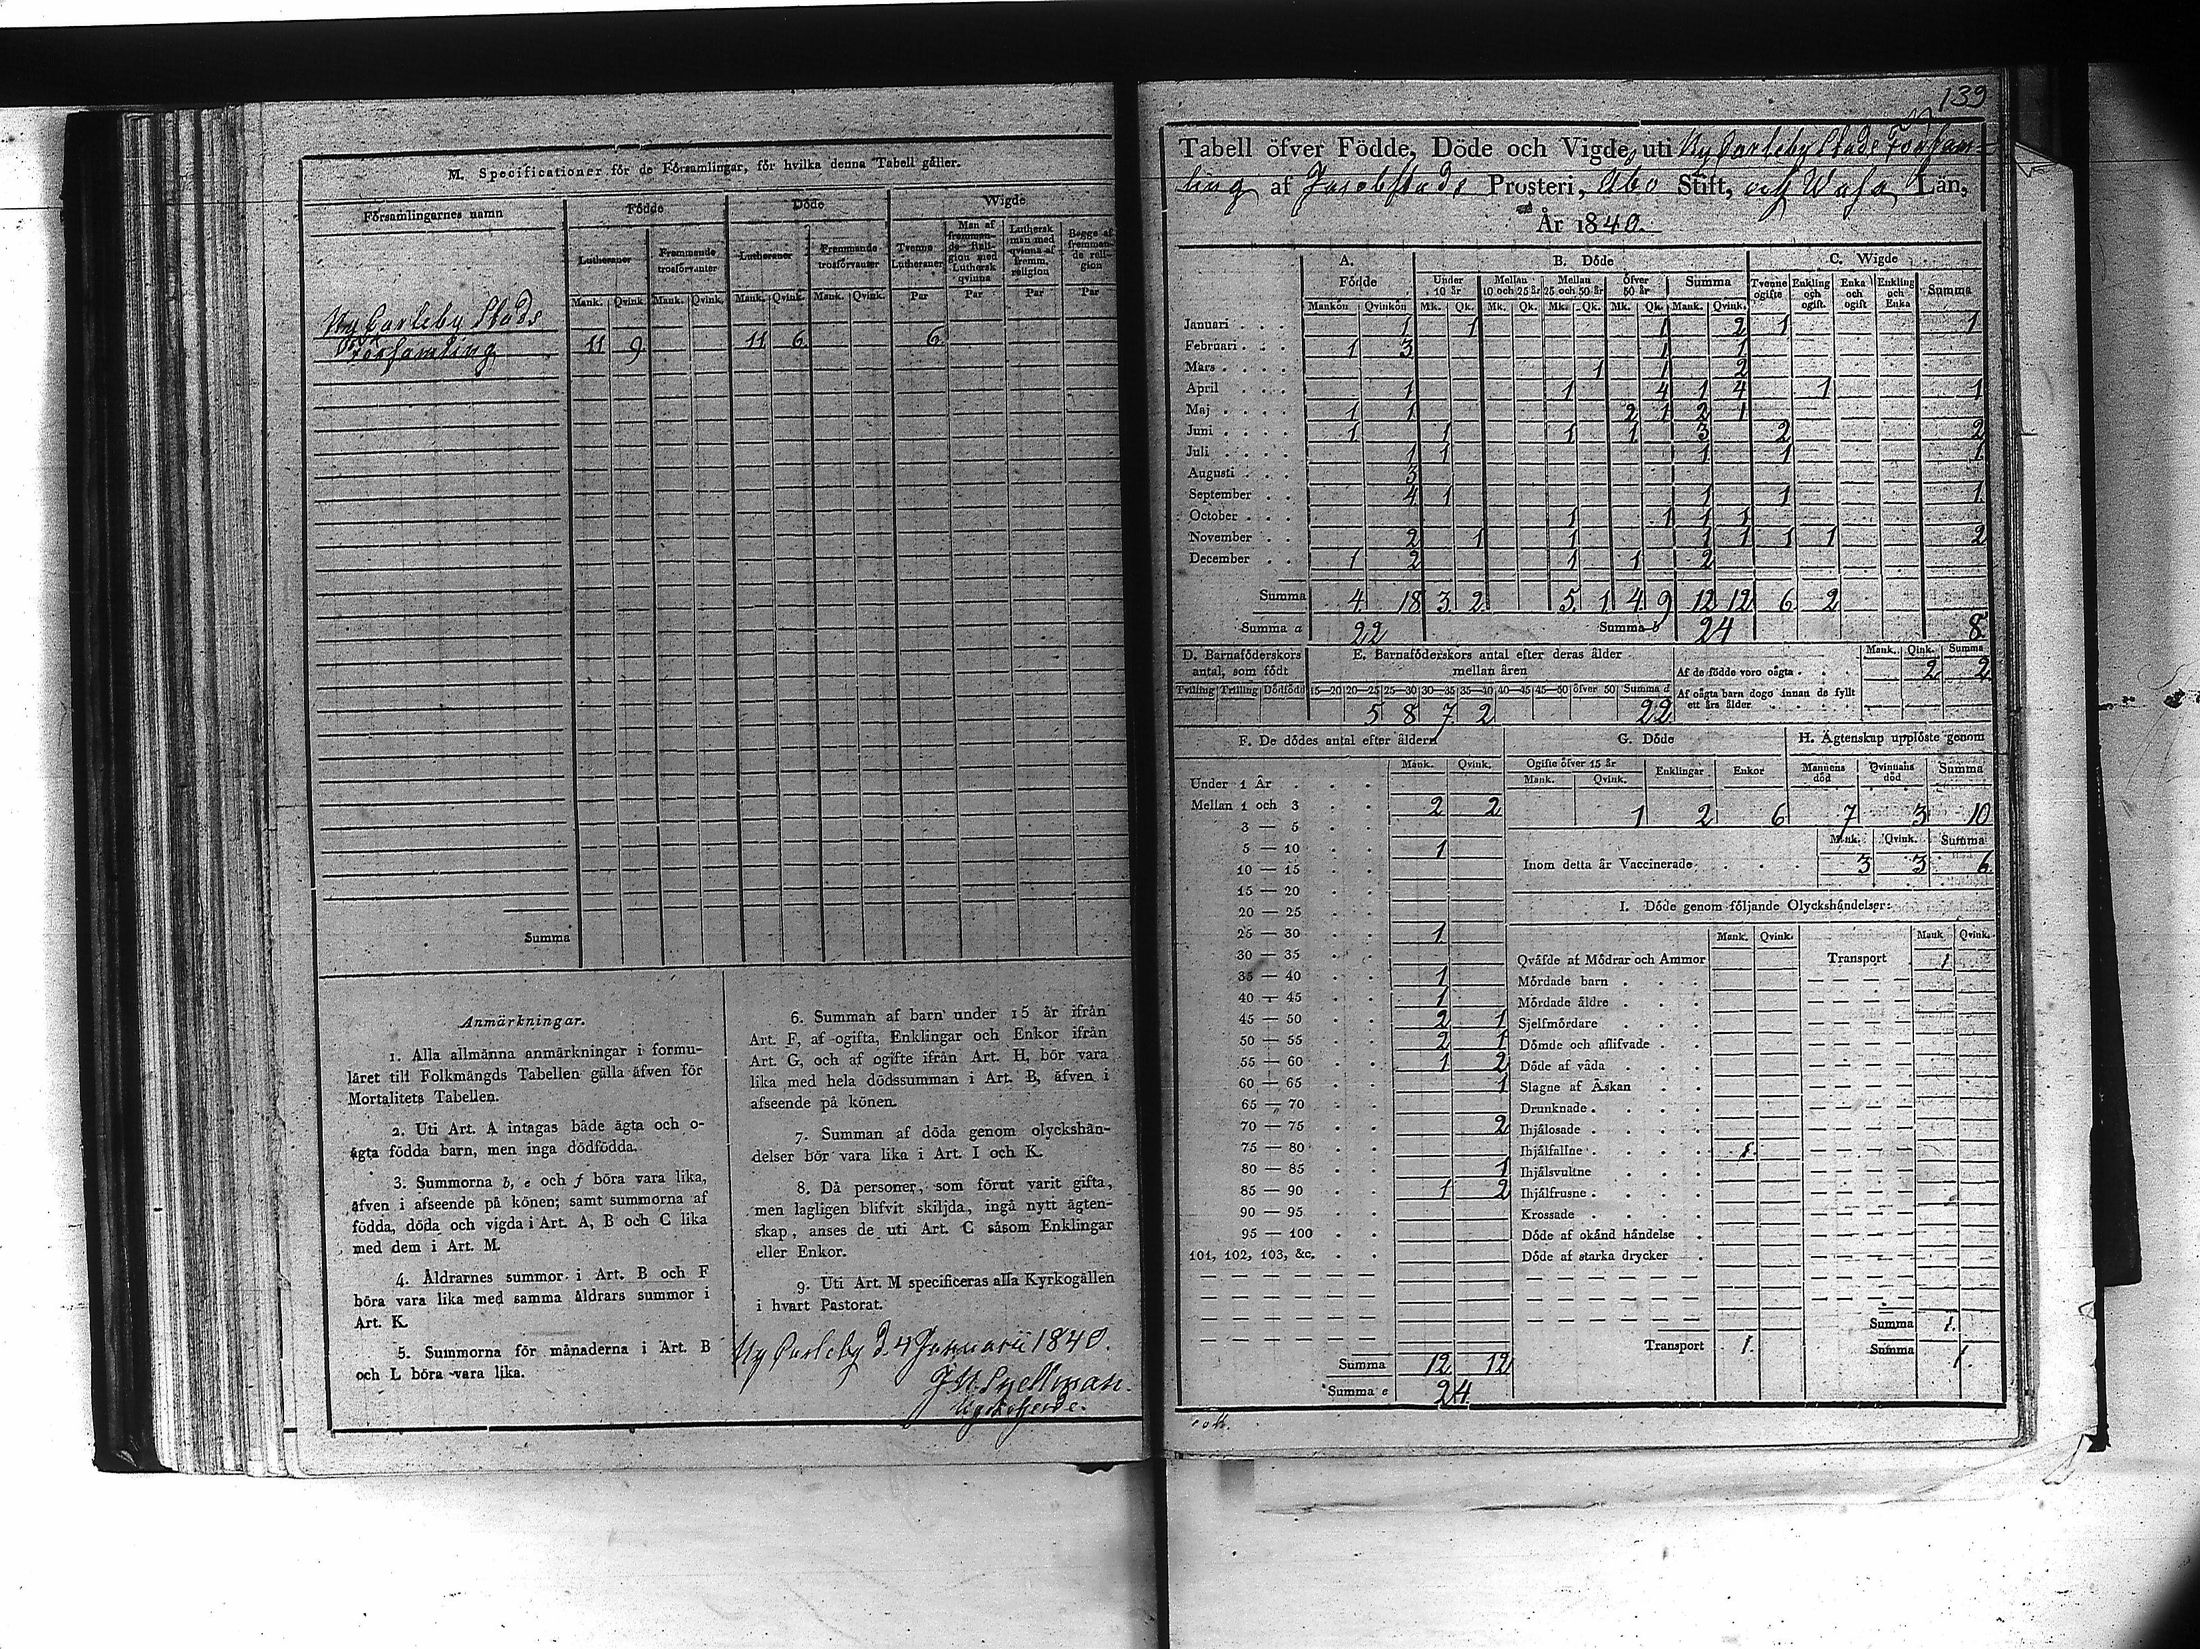 M. Specificationer för de Församlingar, för hvilka denna Tabell gäller.
Församlingarnes namn
Födde Döde Wigde
Lutheraner Fremmande trosförvanter Lutheraner Fremmande trosförvanter Tvenne Lutheraner Man af fremmande Religion med Luthersk qvinna Luthersk man med qvinna af fremm. religion Begge af fremmande religion
Mank. Qvink. Mank. Qvink. Mank. Qvink. Mank. Qvink. Par Par Par Par
Ny Carleby Stads
Församling 11 9 11 6 6
Summa
Anmärkningar.
1. Alla allmänna anmärkningar i formu-
läret till Folkmängds Tabellen gälla äfven för
Mortalitets Tabellen.
2. Uti Art. A intagas både ägta och o-
ägta födda barn, men inga dödfödda.
3. Summorna b, e och f böra vara lika,
äfven i afseende på könen; samt summorna af
födda, döda och vigda i Art. A, B och C lika
med dem i Art. M.
4. Åldrarnes summor i Art. B och F
böra vara lika med samma åldrars summor i
Art. K.
5. Summorna för månaderna i Art. B
och L böra vara lika.
6. Summan af barn under 15 år ifrån
Art. F, af ogifta, Enklingar och Enkor ifrån
Art. G, och af ogifte ifrån Art. H, bör vara
lika med hela dödssumman i Art. B, äfven i
afseende på könen.
7. Summan af döda genom olyckshän-
delser bör vara lika i Art. I och K.
8. Då personer, som förut varit gifta,
men lagligen blifvit skiljda, ingå nytt ägten-
skap, anses de uti Art. C såsom Enklingar
eller Enkor.
9. Uti Art. M specificeras alla Kyrkogällen
i hvart Pastorat.
Ny Carleby d. 4 Januarii 1840.
139
Tabell öfver Födde, Döde och Vigde, uti Ny Carleby Stads Församling
af Jacobstads Prosteri, Åbo Stift, och Wasa Län,
År 1840.
A. Födde B. Döde C. Wigde
Under 10 år Mellan 10 och 25 år Mellan 25 och 50 år öfver 50 år Summa Tvenne ogifte Enkling och ogift. Enka och ogift Enkling och Enka Summa
Mankön Qvinkön Mk. Qk. Mk. Qk. Mk. Qk. Mk. Qk. Mank. Qvink.
Januari 1 1 1 2 1 1
Februari 1 3 1 1
Mars 1 1 2
April 1 1 4 1 4 1 1
Maj 1 1 2 1 2 1
Juni 1 1 1 1 3 2 2
Juli 1 1 1 1 1
Augusti 3
September 4 1 1 1 1
October 1 1 1 1
November 2 1 1 1 1 1 1 2
December 1 2 1 1 2
Summa 4 18 3 2 5 1 4 9 12 12 6 2
Summa a 22 Summa b 24 8
D. Barnaföderskors antal, som födt
Tvilling Trilling Dödfödd
E. Barnaföderskors antal efter deras ålder mellan åren
15—20 20—25 25—30 30—35 35—40 40—45 45—50 öfver 50 Summa d
5 8 7 2 22
Mank. Qink. Summa
Af de födde voro oägta 2 2
Af oägta barn dogo innan de fyllt
ett års ålder
F. De dödes antal efter åldern
Mank. Qvink.
Under 1 År
Mellan 1 och 3 2 2
3 — 5
5 — 10 1
10 — 15
15 — 20
20 — 25
25 — 30 1
30 — 35
35 — 40 1
40 — 45 1
45 — 50 2 1
50 — 55 2 1
55 — 60 1 2
60 — 65 1
65 — 70
70 — 75 2
75 — 80
80 — 85 1
85 — 90 1 2
90 — 95
95 — 100
101, 102, 103, &c.
Summa 12 12
Summa e 24
G. Döde
Ogifte öfver 15 år Enklingar Enkor
Mank. Qvink.
1 2 6
H. Ägtenskap upplöste genom
Mannens död Qvinnans död Summa
7 3 10
Mank. Qvink. Summa
Inom detta år Vaccinerade 3 3 6
I. Döde genom följande Olyckshändelser:
Mank. Qvink. Mank. Qvink.
Qväfde af Mödrar och Ammor Transport 1
Mördade barn
Mördade äldre
Sjelfmördare
Dömde och aflifvade
Döde af våda
Slagne af Åskan
Drunknade
Ihjälosade
Ihjälfallne 1.
Ihjälsvultne
Ihjälfrusne
Krossade
Döde af okänd händelse
Döde af starka drycker
Summa 1.
Transport 1. Summa 1.